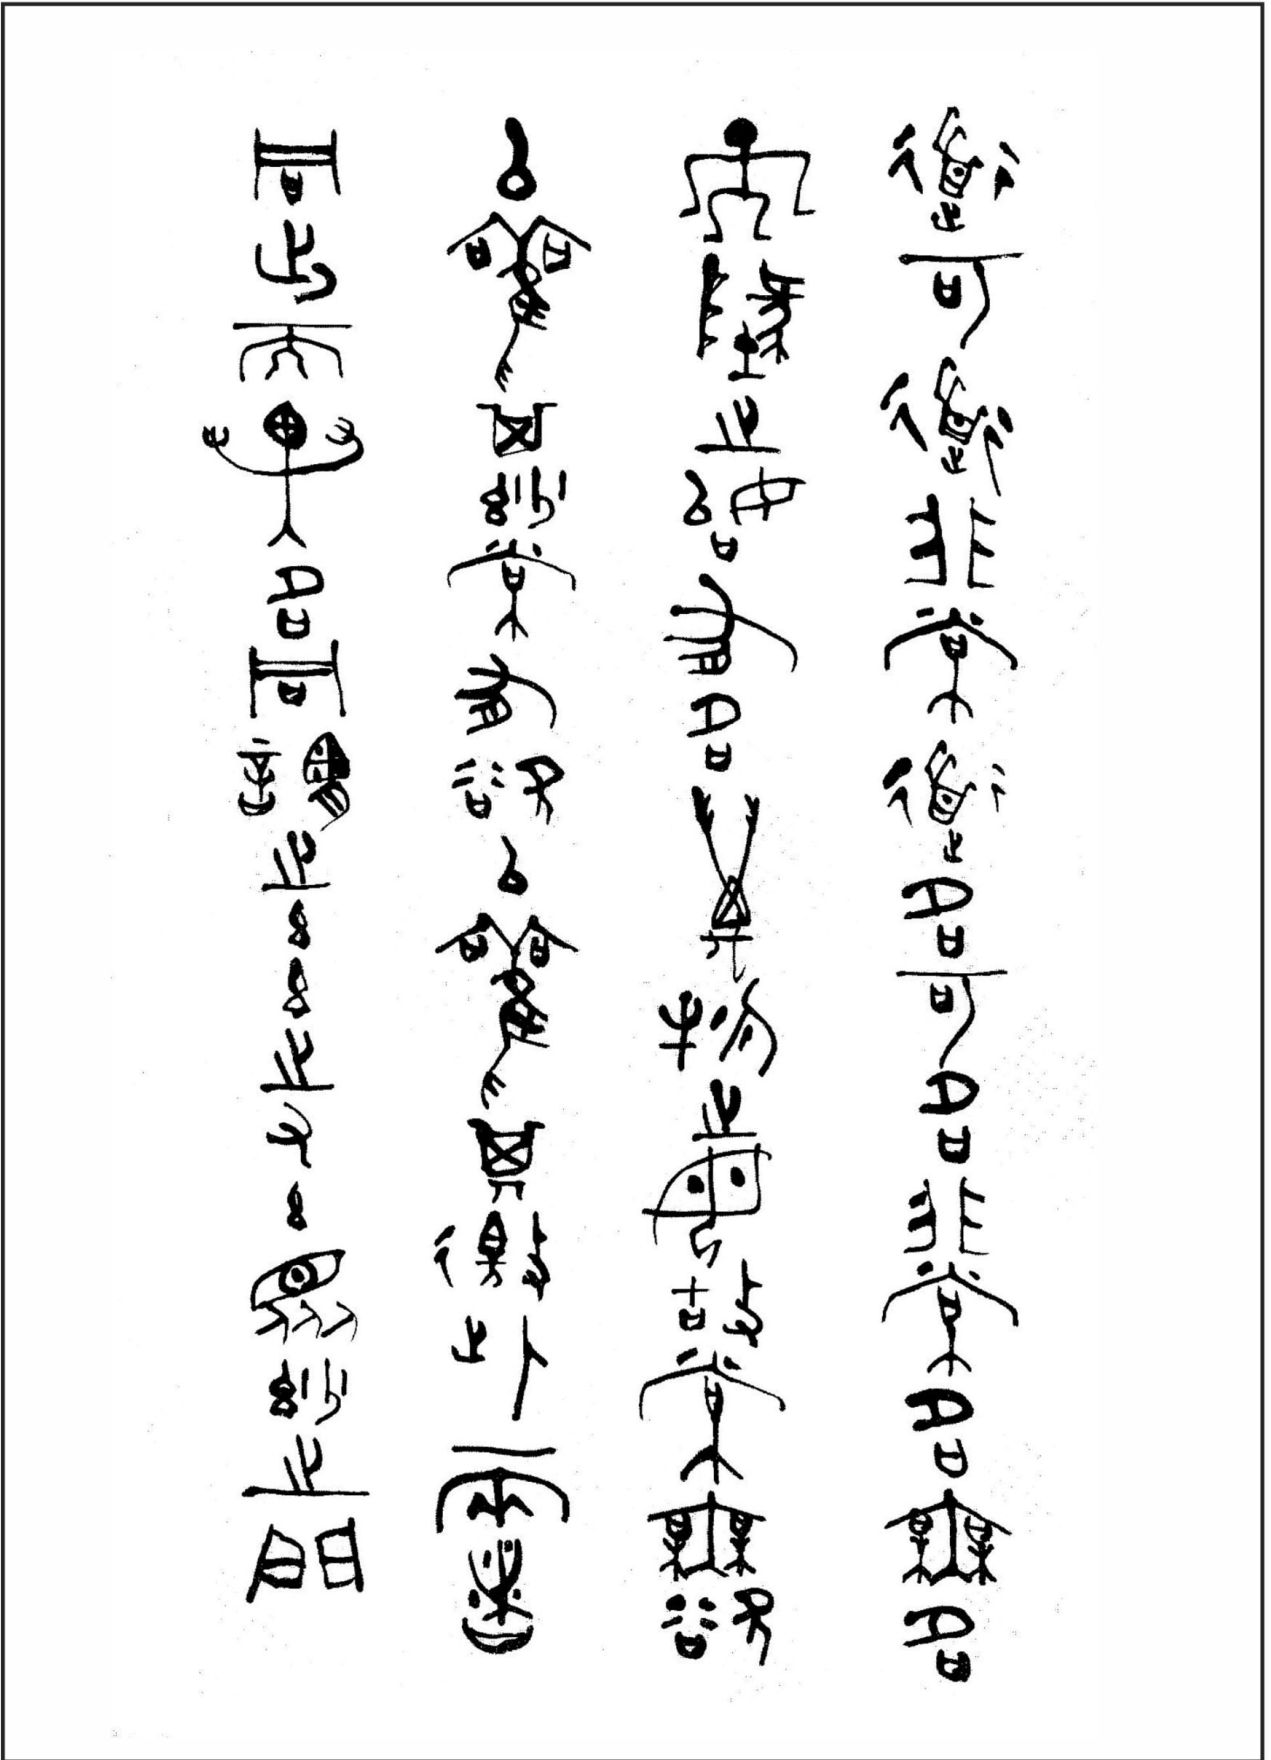 道可道非常道名可名非常名無名
天地之始有名萬物之母故常無欲
以觀其妙常有欲以觀其徼此兩者
同出而異名同謂之玄玄之又玄眾妙之門